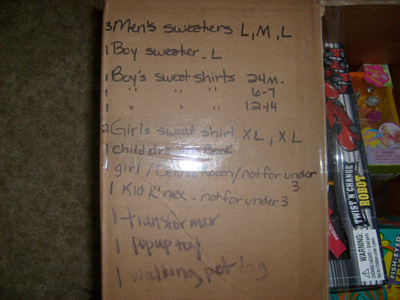 3 Men's sweaters L, M, L
1 Boy sweater - L
1 Boy's sweat shirts 24m.
1 " " " 6-7
1 " " " 12-14
2 Girls sweat shirt XL, XL
1 child Book
girl / Room / not for under 3
1 Kid K'nex - not for under 3
1 transformer
1 popup toy
1 walking pet dog
TWIST N' CHANGE
ROBOT
WARNING:
FISH-EYE